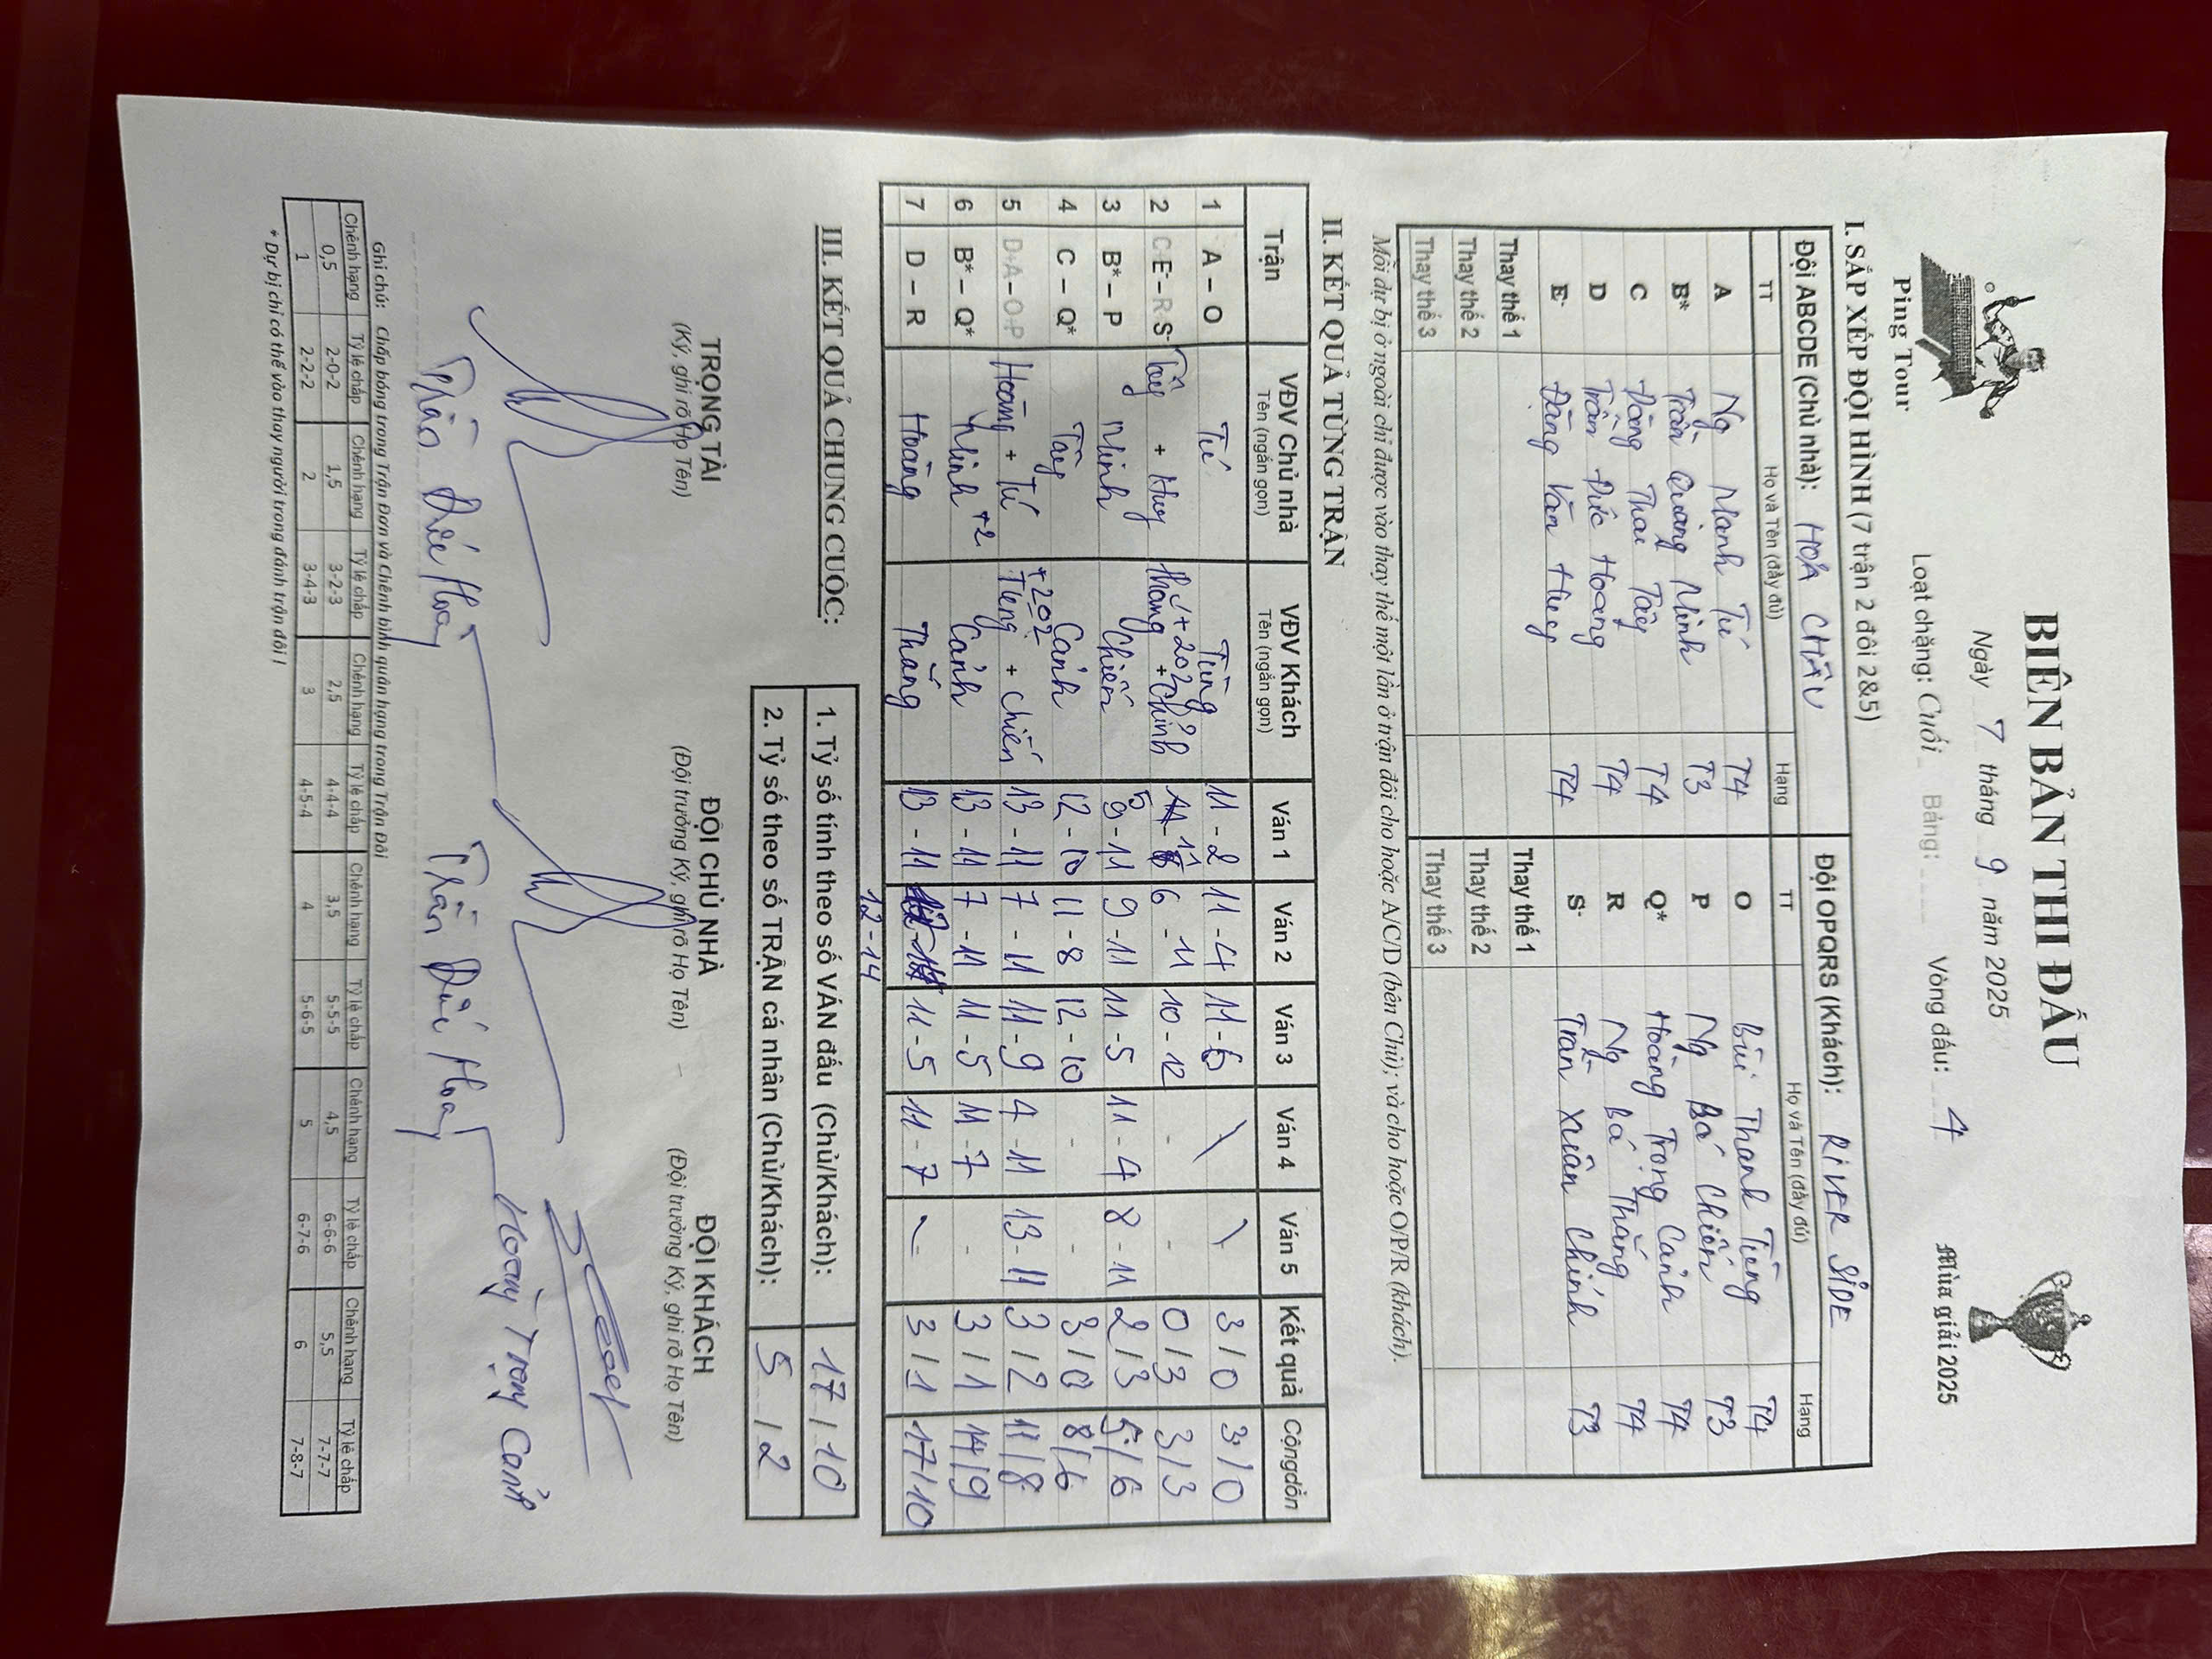 Ping Tour
BIÊN BẢN THI ĐẤU
Ngày 7 tháng 9 năm 2025
Loạt chặng: Cuối Bảng: Vòng đấu: 4
Mùa giải 2025
I. SẮP XẾP ĐỘI HÌNH (7 trận 2 đôi 2&5)
Đội ABCDE (Chủ nhà): HOẢ CHÂU Đội OPQRS (Khách): RIVER SIDE
TT Họ và Tên (đầy đủ) Hạng TT Họ và Tên (đầy đủ) Hạng
A Ng Mạnh Tú T4 O Bùi Thanh Tùng T4
B* Trần Quang Minh T3 P Ng Bá Chiến T3
C Đồng Thái Tây T4 Q* Hoàng Trọng Cảnh T4
D Trần Đức Hoàng T4 R Ng Bá Thắng T4
E- Đặng Văn Huy T4 S- Trần Xuân Chính T3
Thay thế 1 Thay thế 1
Thay thế 2 Thay thế 2
Thay thế 3 Thay thế 3
Mỗi dự bị ở ngoài chỉ được vào thay thế một lần ở trận đôi cho hoặc A/C/D (bên Chủ); và cho hoặc O/P/R (khách).
II. KẾT QUẢ TỪNG TRẬN
Trận VĐV Chủ nhà VĐV Khách Ván 1 Ván 2 Ván 3 Ván 4 Ván 5 Kết quả Cộng dồn
Tên (ngắn gọn) Tên (ngắn gọn)
1 A – O Tú Tùng 11-2 11-4 11-6 3/0 3/0
2 C+E- – R+S- Tây + Huy Thắng + Chính +202 5 - 11 6-11 10-12 - - 0/3 3/3
3 B* – P Minh Chiến 9-11 9-11 11-5 11-4 8-11 2/3 5/6
4 C – Q* Tây Cảnh 12-10 11-8 12-10 - - 3/0 8/6
5 D+A – O+P Hoàng + Tú +202 Tùng + Chiến 13-11 7-11 11-9 4-11 13-11 3/2 11/8
6 B* – Q* Minh +2 Cảnh 13-11 7-11 11-5 11-7 - 3/1 14/9
7 D – R Hoàng Thắng 13-11 11-5 11-7 - 3/1 17/10
12-14
III. KẾT QUẢ CHUNG CUỘC:
1. Tỷ số tính theo số VÁN đấu (Chủ/Khách): 17/10
2. Tỷ số theo số TRẬN cá nhân (Chủ/Khách): 5/2
TRỌNG TÀI ĐỘI CHỦ NHÀ ĐỘI KHÁCH
(Ký, ghi rõ Họ Tên) (Đội trưởng Ký, ghi rõ Họ Tên) (Đội trưởng Ký, ghi rõ Họ Tên)
Trần Đức Hoàng Trần Đức Hoàng Hoàng Trọng Cảnh
Ghi chú: Chấp bóng trong Trận Đơn và Chênh bình quân hạng trong Trận Đôi
Chênh hạng Tỷ lệ chấp Chênh hạng Tỷ lệ chấp Chênh hạng Tỷ lệ chấp Chênh hạng Tỷ lệ chấp Chênh hạng Tỷ lệ chấp Chênh hạng Tỷ lệ chấp
0,5 2-0-2 1,5 3-2-3 2,5 4-4-4 3,5 5-5-5 4,5 6-6-6 5,5 7-7-7
1 2-2-2 2 3-4-3 3 4-5-4 4 5-6-5 5 6-7-6 6 7-8-7
* Dự bị chỉ có thể vào thay người trong đánh trận đôi !